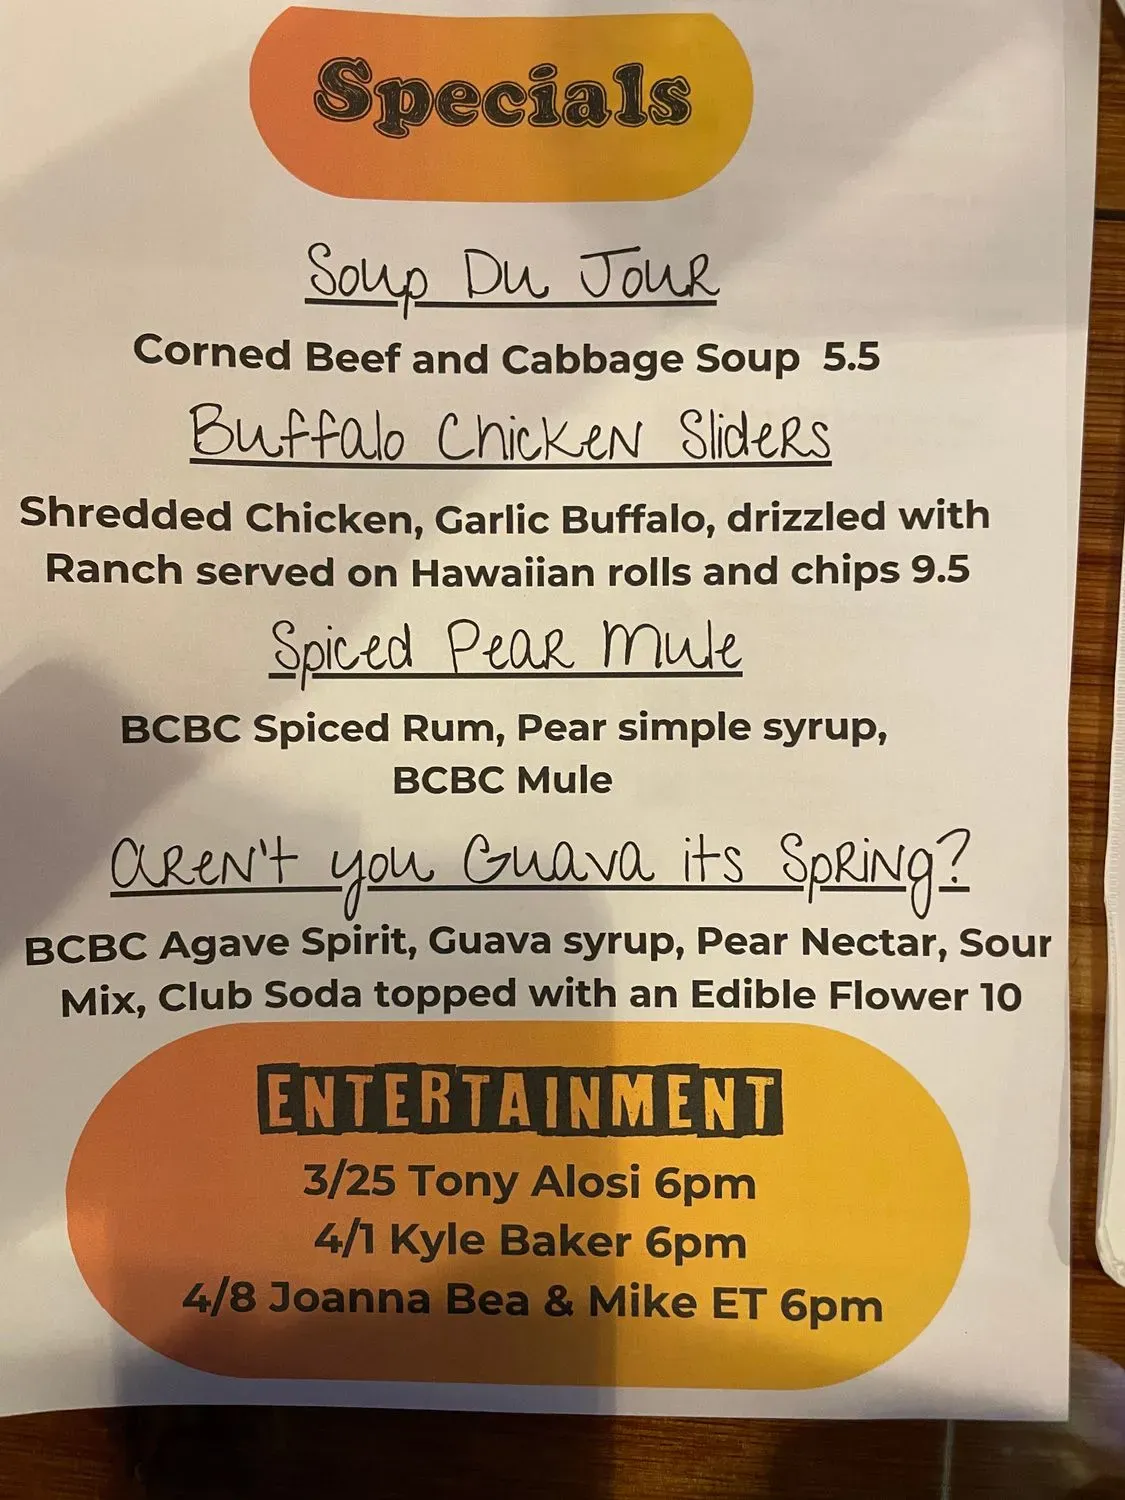 Specials
Soup Du Jour
Corned Beef and Cabbage Soup 5.5
Buffalo Chicken Sliders
Shredded Chicken, Garlic Buffalo, drizzled with
Ranch served on Hawaiian rolls and chips 9.5
Spiced Pear Mule
BCBC Spiced Rum, Pear simple syrup,
BCBC Mule
aren't you Guava its Spring?
BCBC Agave Spirit, Guava syrup, Pear Nectar, Sour
Mix, Club Soda topped with an Edible Flower 10
ENTERTAINMENT
3/25 Tony Alosi 6pm
4/1 Kyle Baker 6pm
4/8 Joanna Bea & Mike ET 6pm